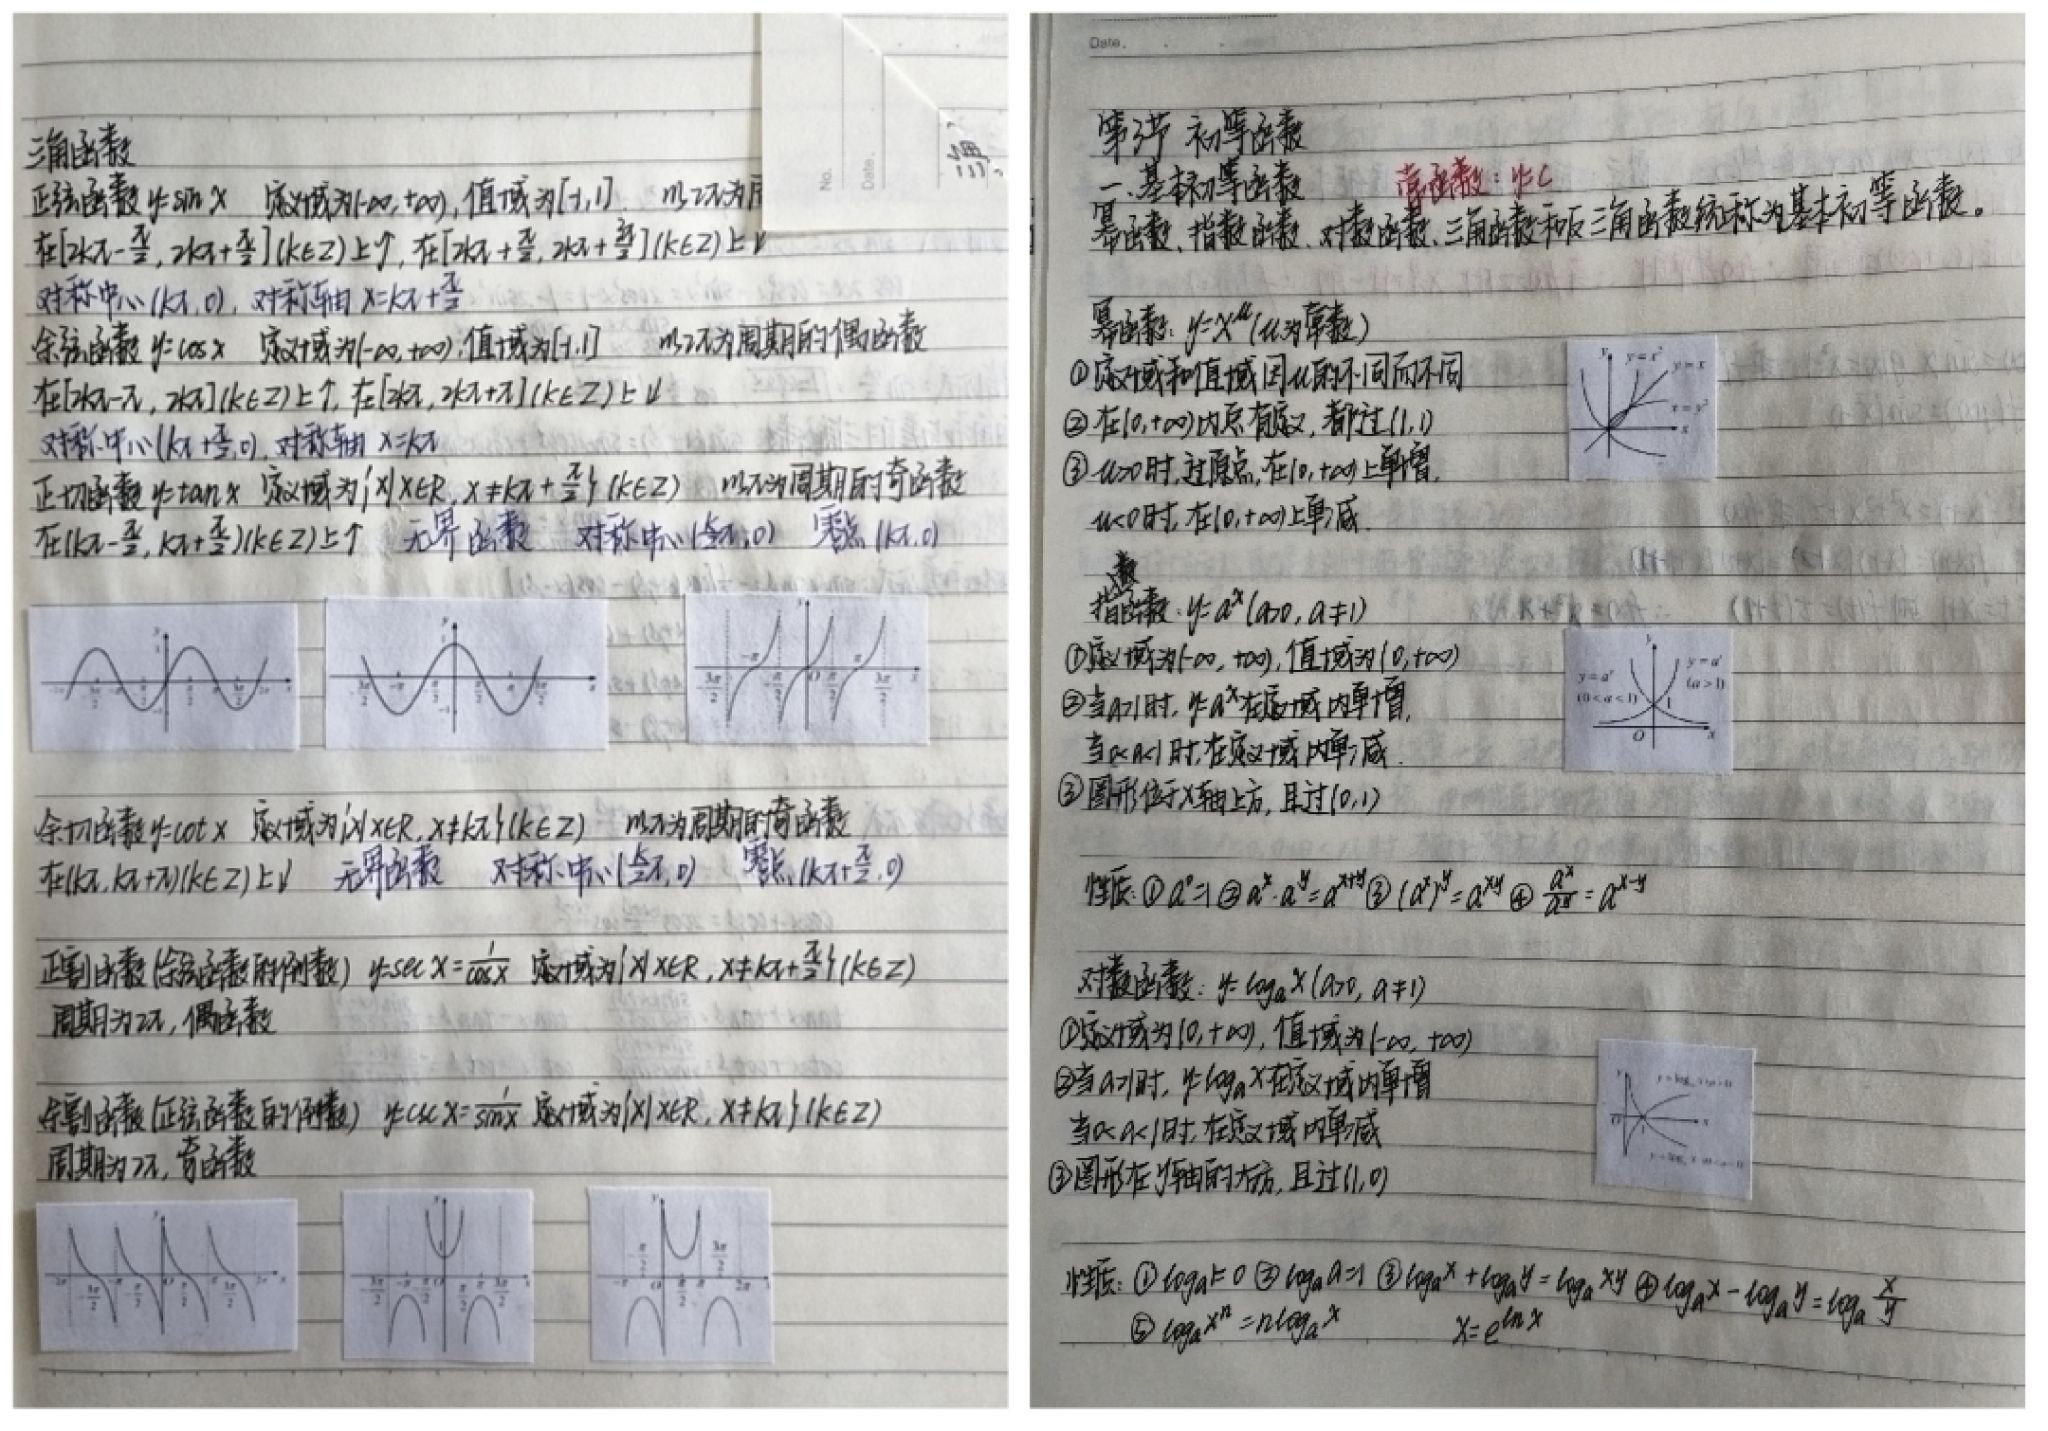 三角函数
正弦函数 y=sin x 定义域为(-∞,+∞),值域为[-1,1] 以2π为周
在[2kπ-π/2, 2kπ+π/2](k∈Z)上↑,在[2kπ+π/2, 2kπ+3π/2](k∈Z)上↓
对称中心(kπ,0),对称轴 x=kπ+π/2
余弦函数 y=cos x 定义域为(-∞,+∞),值域为[-1,1] 以2π为周期的偶函数
在[2kπ-π, 2kπ](k∈Z)上↑,在[2kπ, 2kπ+π](k∈Z)上↓
对称中心(kπ+π/2,0),对称轴 x=kπ
正切函数 y=tan x 定义域为{x|x∈R, x≠kπ+π/2}(k∈Z) 以π为周期的奇函数
在(kπ-π/2, kπ+π/2)(k∈Z)上↑ 无界函数 对称中心(k/2π,0) 零点(kπ,0)
余切函数 y=cot x 定义域为{x|x∈R, x≠kπ}(k∈Z) 以π为周期的奇函数
在(kπ,kπ+π)(k∈Z)上↓ 无界函数 对称中心(k/2π,0) 零点(kπ+π/2,0)
正割函数(余弦函数的倒数) y=sec x=1/cos x 定义域为{x|x∈R, x≠kπ+π/2}(k∈Z)
周期为2π,偶函数
余割函数(正弦函数的倒数) y=csc x=1/sin x 定义域为{x|x∈R, x≠kπ}(k∈Z)
周期为2π,奇函数
No.
Date.
Date.
第3节 初等函数
一.基本初等函数 常函数:y=C
幂函数、指数函数、对数函数、三角函数和反三角函数统称为基本初等函数。
幂函数:y=x^μ(μ为常数)
①定义域和值域因μ的不同而不同
②在(0,+∞)内总有定义,都过(1,1)
③μ>0时,过原点,在(0,+∞)上单增,
μ<0时,在(0,+∞)上单减.
y=x²
y=x
x=y²
指数函数:y=a^x(a>0, a≠1)
①定义域为(-∞,+∞),值域为(0,+∞)
②当a>1时, y=a^x在定义域内单增,
当0<a<1时,在定义域内单减.
③图形位于x轴上方,且过(0,1)
y=a^x (0<a<1)
y=a^x (a>1)
性质:①a^0=1 ②a^x·a^y=a^(x+y) ③(a^x)^y=a^(xy) ④a^x/a^y=a^(x-y)
对数函数:y=log_a x(a>0, a≠1)
①定义域为(0,+∞),值域为(-∞,+∞)
②当a>1时, y=log_a x在定义域内单增
当0<a<1时,在定义域内单减
③图形在y轴的右方,且过(1,0)
性质:①log_a 1=0 ②log_a a=1 ③log_a x+log_a y=log_a xy ④log_a x-log_a y=log_a x/y
⑤log_a x^n=nlog_a x x=e^(ln x)